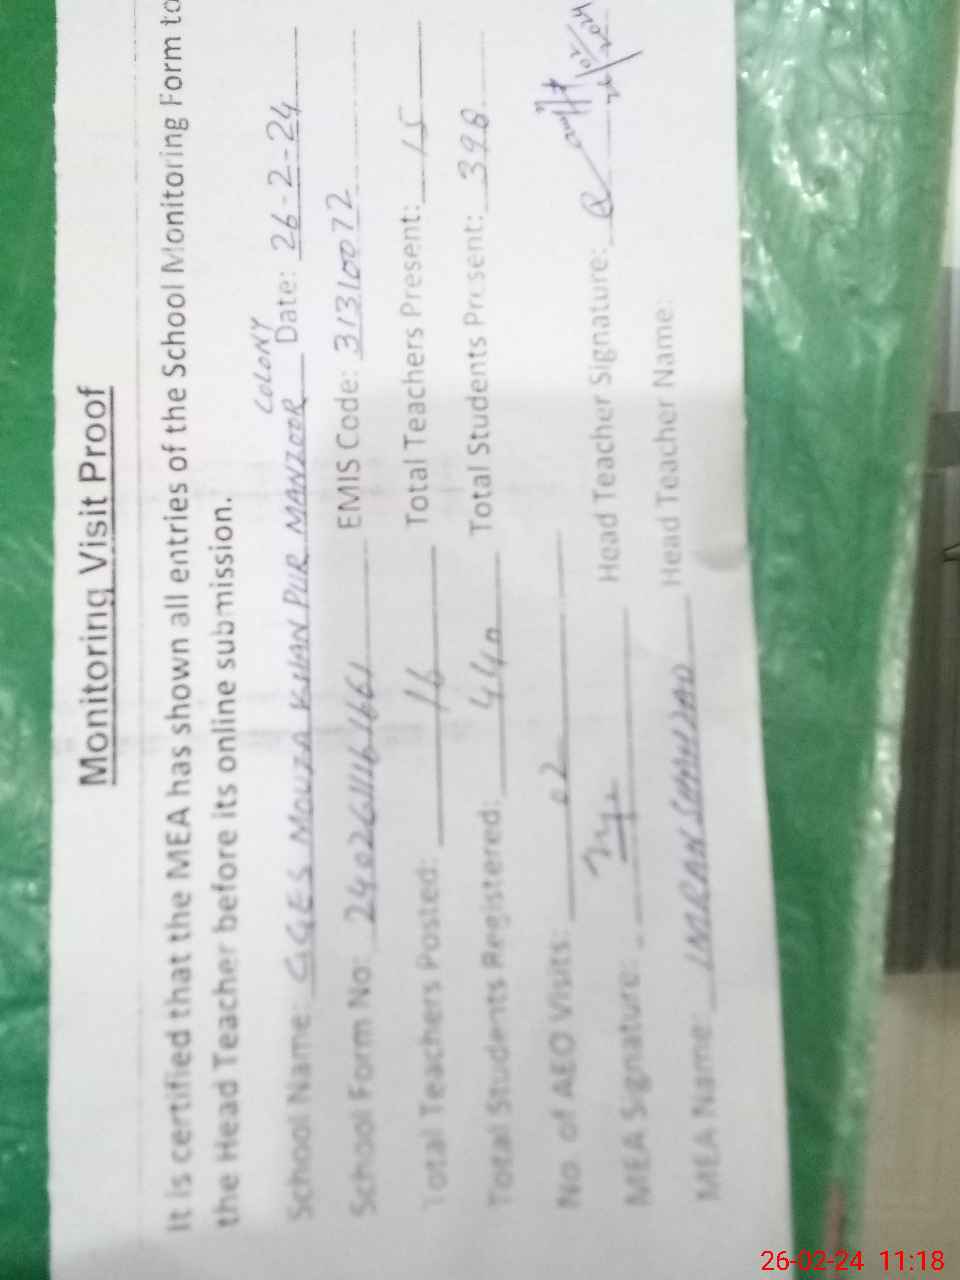 Monitoring Visit Proof
It is certified that the MEA has shown all entries of the School Monitoring Form to
the Head Teacher before its online submission.
COLONY
School Name: GGES MOUZA KHAN PUR MANZOOR Date: 26-2-24
School Form No: EMIS Code: 31310072
Total Teachers Posted: 16 Total Teachers Present: 15
Total Students Registered: 440 Total Students Present: 398
No. of AEO Visits: 02
MEA Signature: Head Teacher Signature:
26/02/2024
MEA Name: IMRAN SHAHZAD Head Teacher Name:
26-02-24 11:18